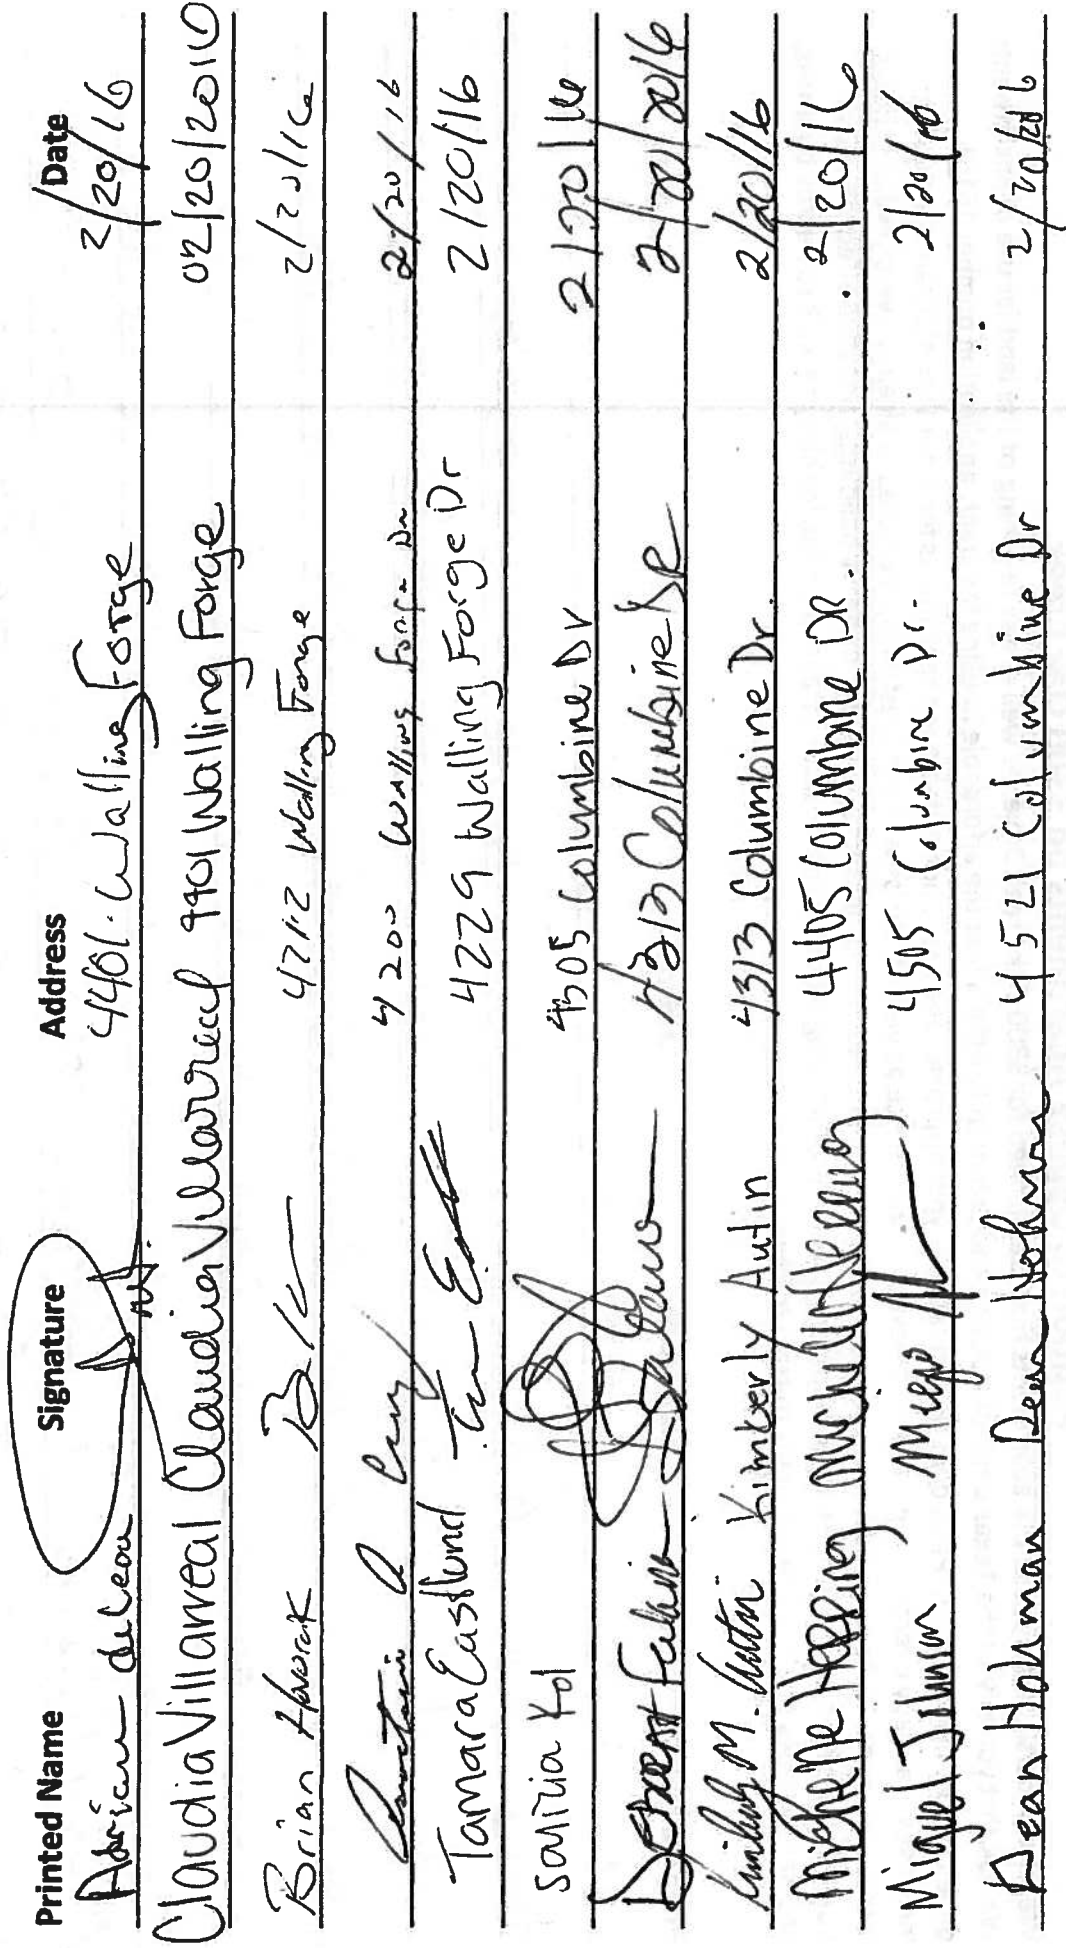 Printed Name Signature Address Date
Adrian deLeon 4401 Walling Forge 2/20/16
Claudia Villarreal Claudia Villarreal 4401 Walling Forge 02/20/2016
Brian Horak 4212 Walling Forge 2/20/16
4200 Walling Forge Dr 2/20/16
Tamara Eastlund 4229 Walling Forge Dr 2/20/16
Kol 4505 Columbine Dr 2/20/16
4213 Columbine DR 2/20/2016
Kimberly M. Autin Kimberly Autin 4313 Columbine Dr. 2/20/16
Michelle 4405 Columbine DR. 2/20/16
Miguel Johnson 4505 Columbine Dr. 2/20/16
Dean Hohman Dean Hohman 4521 Columbine Dr 2/20/2016